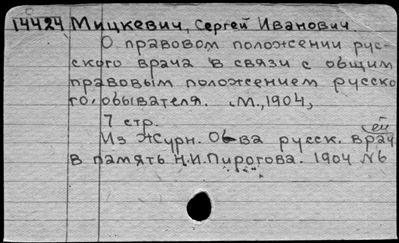 14424 Мицкевич, Сергей Иванович.
О правовом положении рус-
ского врача в связи с общим
правовым положением русско
го, обывателя. М., 1904,
7 стр.
Из журн. Об-ва русск. врачей
в память Н.И. Пирогова. 1904 №6